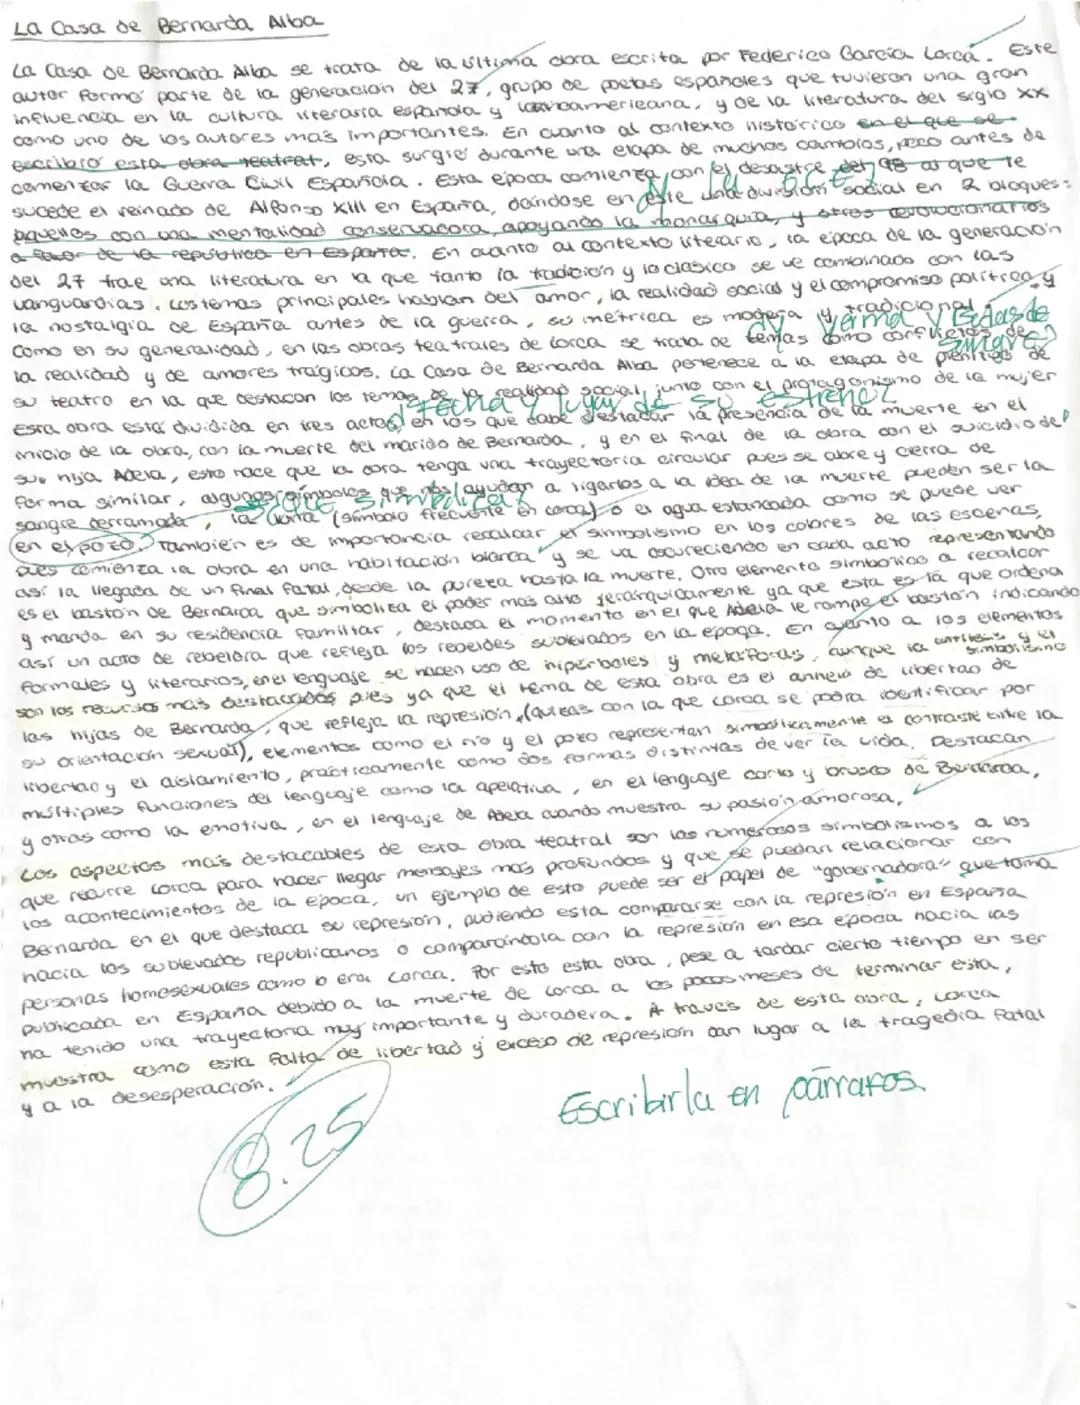 La Casa de Bernarda Alba
La Casa de Bernarda Alba se trata de la última obra escrita por Federico García Lorca. Este
autor formó parte de la generación del 27, grupo de poetas españoles que tuvieron una gran
influencia en la cultura literaria española y latinoamericana, y de la literatura del siglo XX
como uno de los autores más importantes. En cuanto al contexto histórico en el que se
escribió esta obra teatral, esta surgió durante una etapa de muchos cambios, poco antes de
comenzar la Guerra Civil Española. Esta época comienza con el desastre del 98 al que le
¿Y la 2ª R.E?
sucede el reinado de Alfonso XIII en España, dándose en este una división social en 2 bloques:
aquellos con una mentalidad conservadora, apoyando la monarquía, y otros revolucionarios
a favor de la república en España. En cuanto al contexto literario, la época de la generación
del 27 trae una literatura en la que tanto la tradición y lo clásico se ve combinado con las
vanguardias. Los temas principales hablan del amor, la realidad social y el compromiso político y
la nostalgia de España antes de la guerra, su métrica es moderna y tradicional.
¿y Yerma y Bodas de Sangre?
Como en su generalidad, en las obras teatrales de Lorca se trata de temas como conflictos de
la realidad y de amores trágicos. La Casa de Bernarda Alba pertenece a la etapa de plenitud de
su teatro en la que destacan los temas de la realidad social, junto con el protagonismo de la mujer
¿Fecha y lugar de su estreno?
Esta obra está dividida en tres actos, en los que cabe destacar la presencia de la muerte en el
inicio de la obra, con la muerte del marido de Bernarda, y en el final de la obra con el suicidio de
su hija Adela, esto hace que la obra tenga una trayectoria circular pues se abre y cierra de
forma similar, algunos símbolos que nos ayudan a ligarlos a la idea de la muerte pueden ser la
¿Qué simboliza?
sangre derramada, la luna (símbolo frecuente en Lorca) o el agua estancada como se puede ver
en el pozo. También es de importancia recalcar el simbolismo en los colores de las escenas,
pues comienza la obra en una habitación blanca y se va oscureciendo en cada acto representando
así la llegada de un final fatal, desde la pureza hasta la muerte. Otro elemento simbólico a recalcar
es el bastón de Bernarda que simboliza el poder más alto jerárquicamente ya que esta es la que ordena
y manda en su residencia familiar, destaca el momento en el que Adela le rompe el bastón indicando
así un acto de rebeldía que refleja los rebeldes sublevados en la época. En cuanto a los elementos
formales y literarios, en el lenguaje se hacen uso de hipérboles y metáforas, aunque la antítesis y el simbolismo
son los recursos más destacados pues ya que el tema de esta obra es el anhelo de libertad de
las hijas de Bernarda, que refleja la represión, (quizás con la que Lorca se podía identificar por
su orientación sexual), elementos como el río y el pozo representan simbólicamente el contraste entre la
libertad y el aislamiento, prácticamente como dos formas distintas de ver la vida. Destacan
múltiples funciones del lenguaje como la apelativa, en el lenguaje corto y brusco de Bernarda,
y otras como la emotiva, en el lenguaje de Adela cuando muestra su pasión amorosa.
Los aspectos más destacables de esta obra teatral son los numerosos simbolismos a los
que recurre Lorca para hacer llegar mensajes más profundos y que se puedan relacionar con
los acontecimientos de la época, un ejemplo de esto puede ser el papel de "gobernadora" que toma
Bernarda en el que destaca su represión, pudiendo esta compararse con la represión en España
hacia los sublevados republicanos o comparándola con la represión en esa época hacia las
personas homosexuales como lo era Lorca. Por esto esta obra, pese a tardar cierto tiempo en ser
publicada en España debido a la muerte de Lorca a los pocos meses de terminar esta,
ha tenido una trayectoria muy importante y duradera. A través de esta obra, Lorca
muestra como esta falta de libertad y exceso de represión dan lugar a la tragedia fatal
y a la desesperación.
Escribirla en párrafos.
8.25